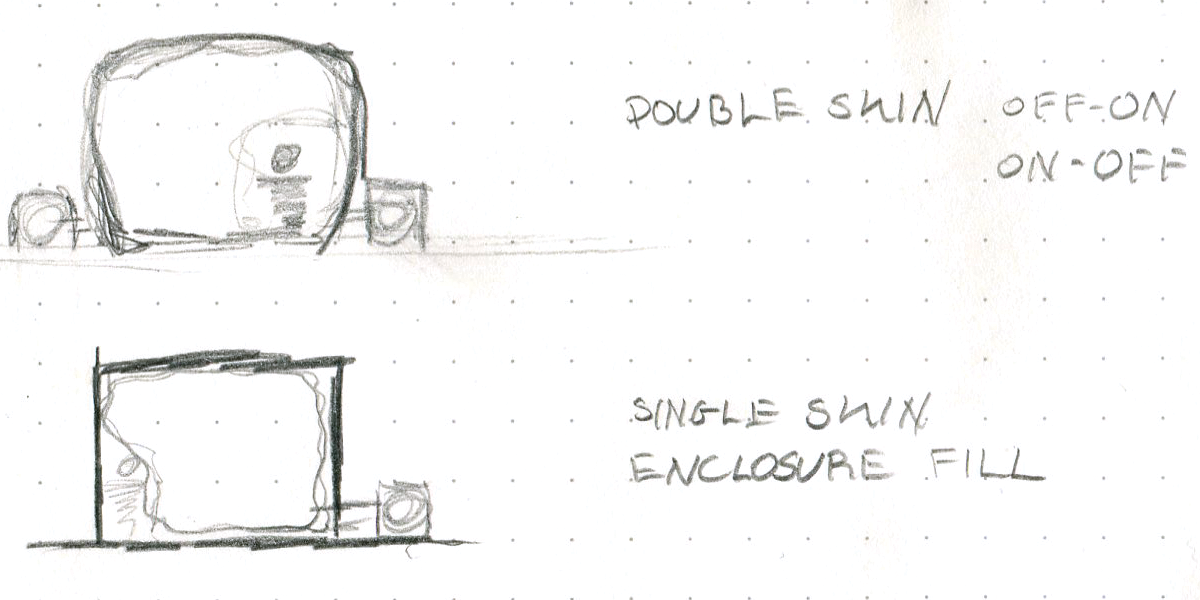 DOUBLE SKIN OFF-ON
ON-OFF
SINGLE SKIN
ENCLOSURE FILL